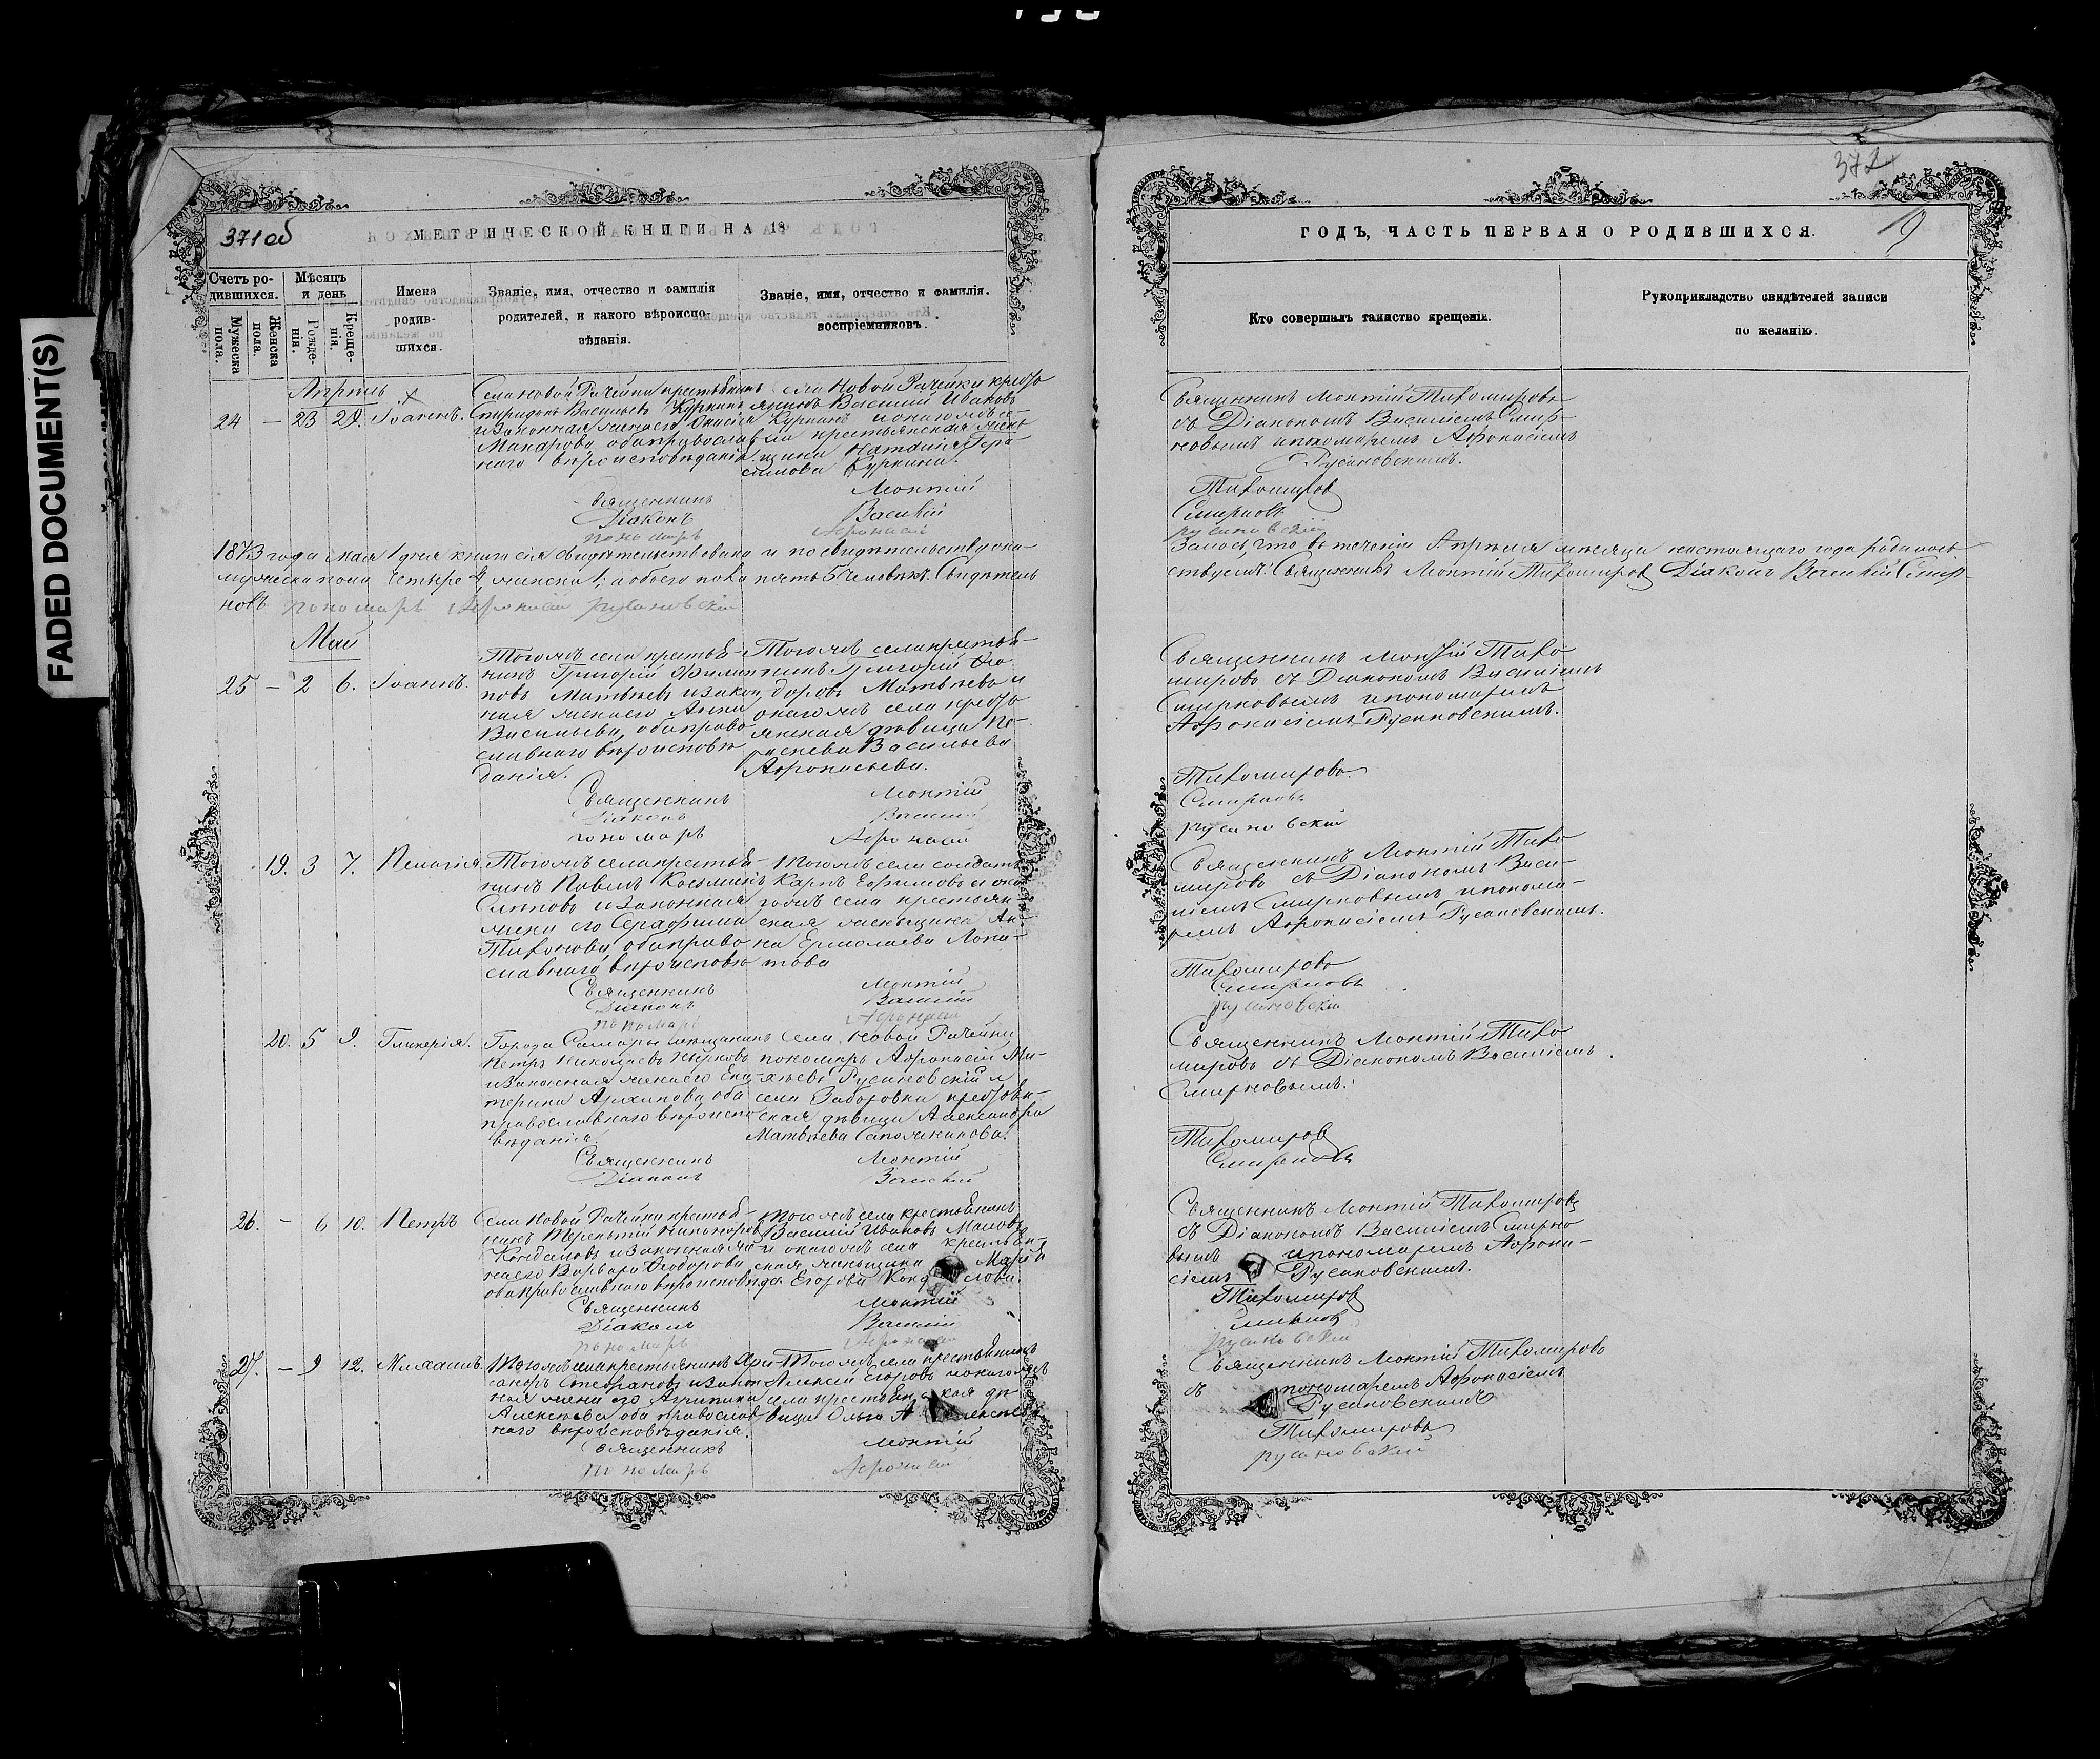 FADED DOCUMENT(S)
371 об
МЕТРИЧЕСКОЙ КНИГИ НА 18
Счетъ ро-
дившихся.
Мужеска пола.
Женска пола.
Мѣсяцъ
и день
Рожде-
нія.
Креще-
нія.
Имена
родив-
шихся.
Званіе, имя, отчество и фамилія
родителей, и какого вѣроиспо-
вѣданія.
Званіе, имя, отчество и фамилія.
воспріемниковъ.
Апрѣль
24 — 23 29.
Села Новой Рачейки крестьянинъ
Спиридонъ Васильевъ Куркинъ
и законная жена его
Макарова, оба православ
наго вѣроисповѣданія.
села Новой Рачейки кресть
янинъ Василій Ивановъ
Куркинъ
крестьянская жен
щина Наталія Гера-
симова Куркина.
Священникъ Монтій
Діаконъ Василій
пономарь Афонасій
1873 года мая 1 дня книга сія свидѣтельствована и по свидѣтельству ока-
мужеска пола четыре 4 женска 1, а обоего пола пять 5 человѣкъ. Свидѣтель
новъ пономарь Афонасій Русановскій
Май
25 — 2 6. Іоаннъ.
Тогожъ села крестья-
нинъ Григорій Филип
повъ Матвѣевъ и закон
ная жена его Анна
Васильева, оба право
славнаго вѣроисповѣ
данія.
Тогожъ села крестья-
нинъ Григорій Ѳео
доровъ Матвѣевъ и
онагожъ села кресть
янская дѣвица Па-
раскева Васильева
Афонасьева.
Священникъ Монтій
Діаконъ Василій
пономарь Афонасій
19. 3 7. Пелагія.
Тогожъ села крестья-
нинъ Павелъ Косьминъ
Слѣповъ и законная
жена его Серафима
Тихонова, оба право
славнаго вѣроисповѣ
Тогожъ села солдатъ
Карпъ Ефимовъ и она
гожъ села крестьян
ская женщина Ан
на Ермолаева Лопа-
това
Священникъ Монтій
Діаконъ Василій
пономарь Афонасій
20. 5 9. Гликерія.
Города Самары мѣщанинъ
Петръ Николаевъ
и законная жена его Ека-
терина Архипова, оба
православнаго вѣроиспо
вѣданія.
Села Новой Рачейки
пономарь Афонасій Ми-
хѣевъ Русановскій и
села Заборовки крестьян-
ская дѣвица Александра
Матвѣева Сапожникова.
Священникъ Монтій
Діаконъ Василій
26. — 6 10. Петръ
Села Новой Рачейки крестья-
нинъ Терентій Никаноровъ
Кондаловъ и законная же
на его Варвара Ѳеодорова
оба православнаго вѣроисповѣда
Тогожъ села крестьянинъ
Василій Ивановъ Масловъ
и онагожъ села крестьян-
ская женщина Марія
Егорова Кондалова
Священникъ Монтій
Діаконъ Василій
пономарь Афонасій
27. — 9 12. Михаилъ.
Тогожъ села крестьянинъ
Стефановъ и закон
ная жена его Агрипина
Алексѣева оба православ
наго вѣроисповѣданія.
Тогожъ села крестьянинъ
Алексѣй Егоровъ и онагожъ
села крестьянская дѣ
вица Ольга Алексѣева
Священникъ Монтій
пономарь Афонасій
372
19
ГОДЪ, ЧАСТЬ ПЕРВАЯ О РОДИВШИХСЯ.
Кто совершалъ таинство крещенія.
Рукоприкладство свидѣтелей записи
по желанію.
Священникъ Монтій Тихомировъ
съ Діакономъ Василіемъ Смир-
новымъ и пономаремъ Афонасіемъ
Русановскимъ.
Тихомировъ
Смирновъ
русановскій
залось, что въ теченіи Апрѣля мѣсяца настоящаго года родилось
ствуемъ: Священникъ Монтій Тихомировъ Діаконъ Василій Смир-
Священникъ Монтій Тихо
мировъ съ Діакономъ Василіемъ
Смирновымъ и пономаремъ
Афонасіемъ Русановскимъ.
Тихомировъ.
Смирновъ
русановскій
Священникъ Монтій Тихо
мировъ съ Діакономъ Васи-
ліемъ Смирновымъ и понома-
ремъ Афонасіемъ Русановскимъ.
Тихомировъ
Смирновъ
русановскій
Священникъ Монтій Тихо
мировъ съ Діакономъ Василіемъ
Смирновымъ.
Тихомировъ
Смирновъ
Священникъ Монтій Тихомировъ
съ Діакономъ Василіемъ Смирно
вымъ и пономаремъ Афона-
сіемъ Русановскимъ.
Тихомировъ
Смирновъ
русановскій
Священникъ Монтій Тихомировъ
съ пономаремъ Афонасіемъ
Русановскимъ
Тихомировъ
русановскій